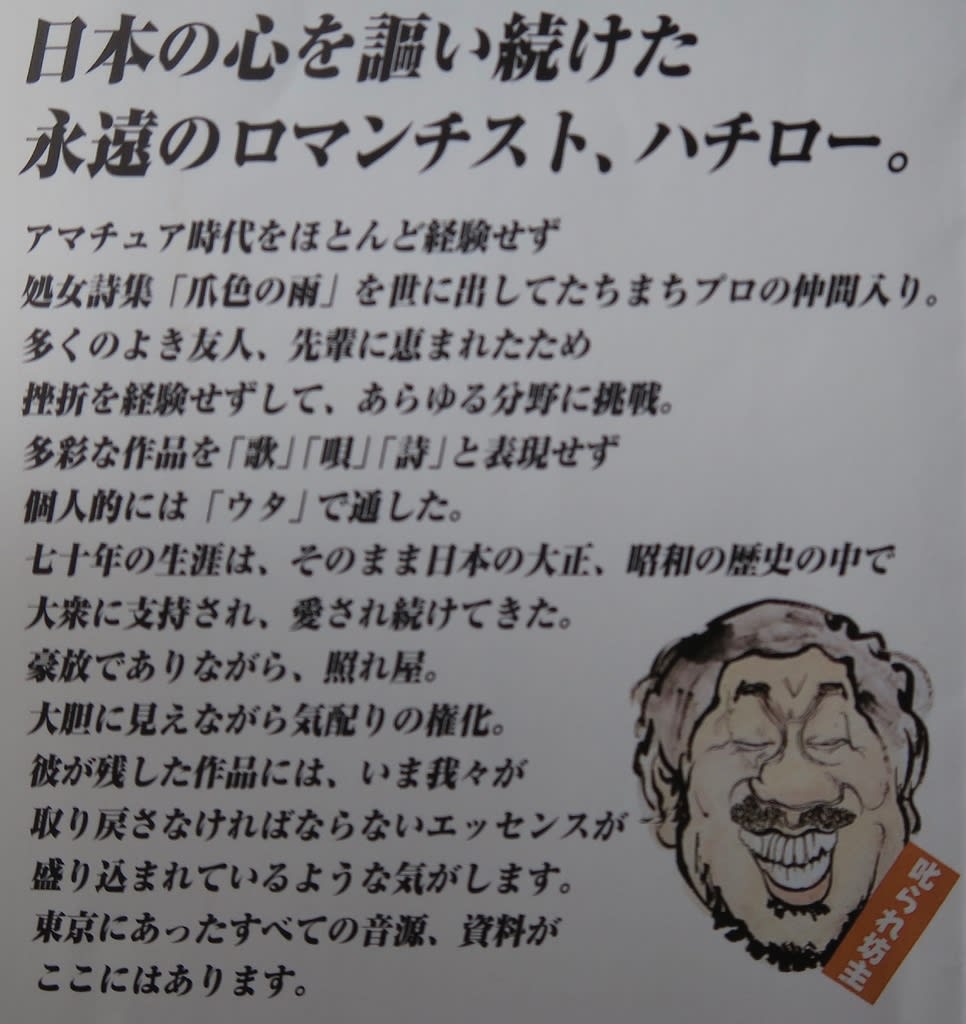 日本の心を謳い続けた
永遠のロマンチスト、ハチロー。
アマチュア時代をほとんど経験せず
処女詩集「爪色の雨」を世に出してたちまちプロの仲間入り。
多くのよき友人、先輩に恵まれたため
挫折を経験せずして、あらゆる分野に挑戦。
多彩な作品を「歌」「唄」「詩」と表現せず
個人的には「ウタ」で通した。
七十年の生涯は、そのまま日本の大正、昭和の歴史の中で
大衆に支持され、愛され続けてきた。
豪放でありながら、照れ屋。
大胆に見えながら気配りの権化。
彼が残した作品には、いま我々が
取り戻さなければならないエッセンスが
盛り込まれているような気がします。
東京にあったすべての音源、資料が
ここにはあります。
叱られ坊主